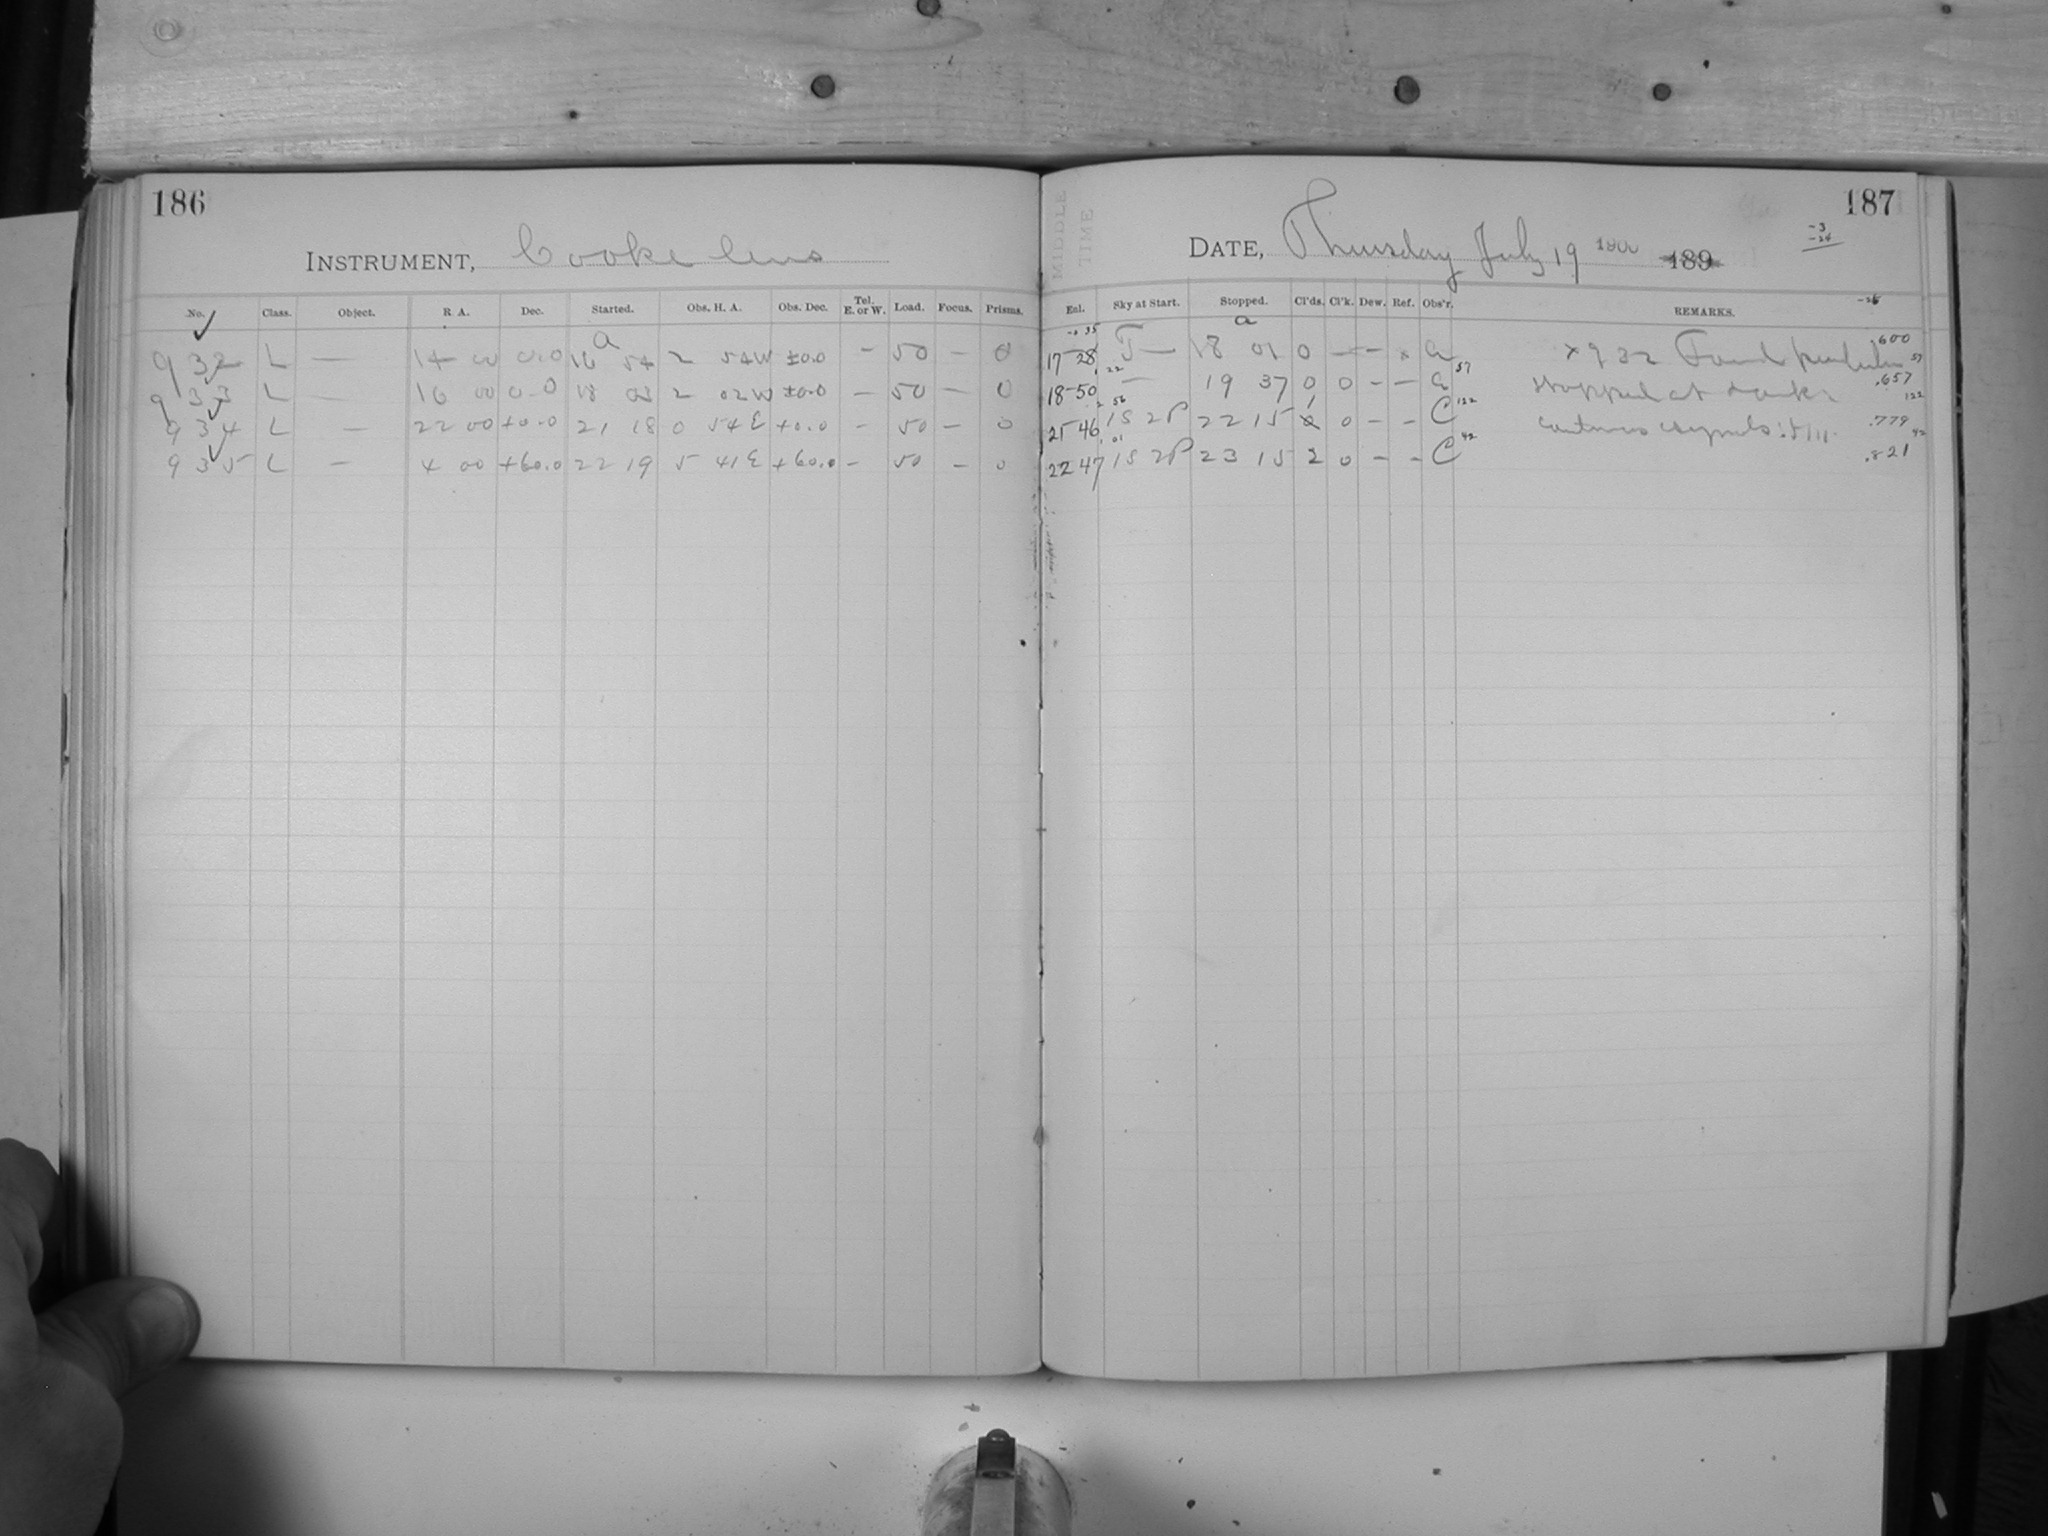 186
INSTRUMENT, Cooke lens
No. Class. Object. R A. Dec. Started. Obs. H. A. Obs. Dec. Tel. E. or W. Load. Focus. Prisms.
a
932 L — 14 00 0.0 16 54 2 54W ±0.0 — 50 — 0
933 L — 16 00 0.0 18 03 2 02W ±0.0 — 50 — 0
934 L — 22 00 +0.0 21 18 0 54E +0.0 — 50 — 0
935 L — 4 00 +60.0 22 19 5 41E +60.0 — 50 — 0
MIDDLE TIME
187
-3
-24
DATE, Thursday July 19 1900 189
-25
Enl. Sky at Start. Stopped. Cl'ds. Cl'k. Dew. Ref. Obs'r. REMARKS.
a
17 28 — 18 01 0 — — x a x 932 Found pendulum .600
57
18 50 22 — 19 37 0 0 — — a 57 stopped at .657
122
21 46 2 56 1S 2P 22 15 1 0 — — C 122 .779
42
22 47 01 1S 2P 23 15 2 0 — — C 42 .821